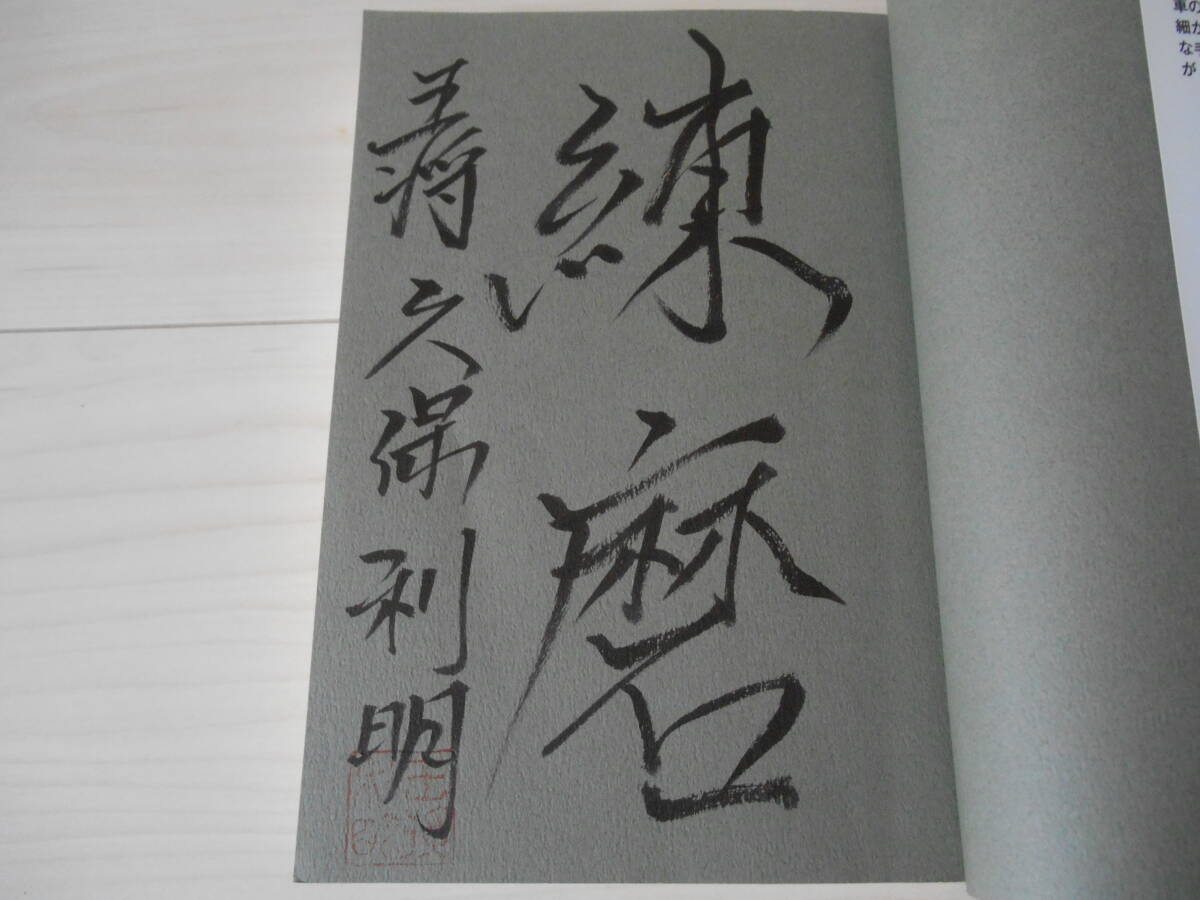 車の
細か
な手
が
練磨
王将 久保利明